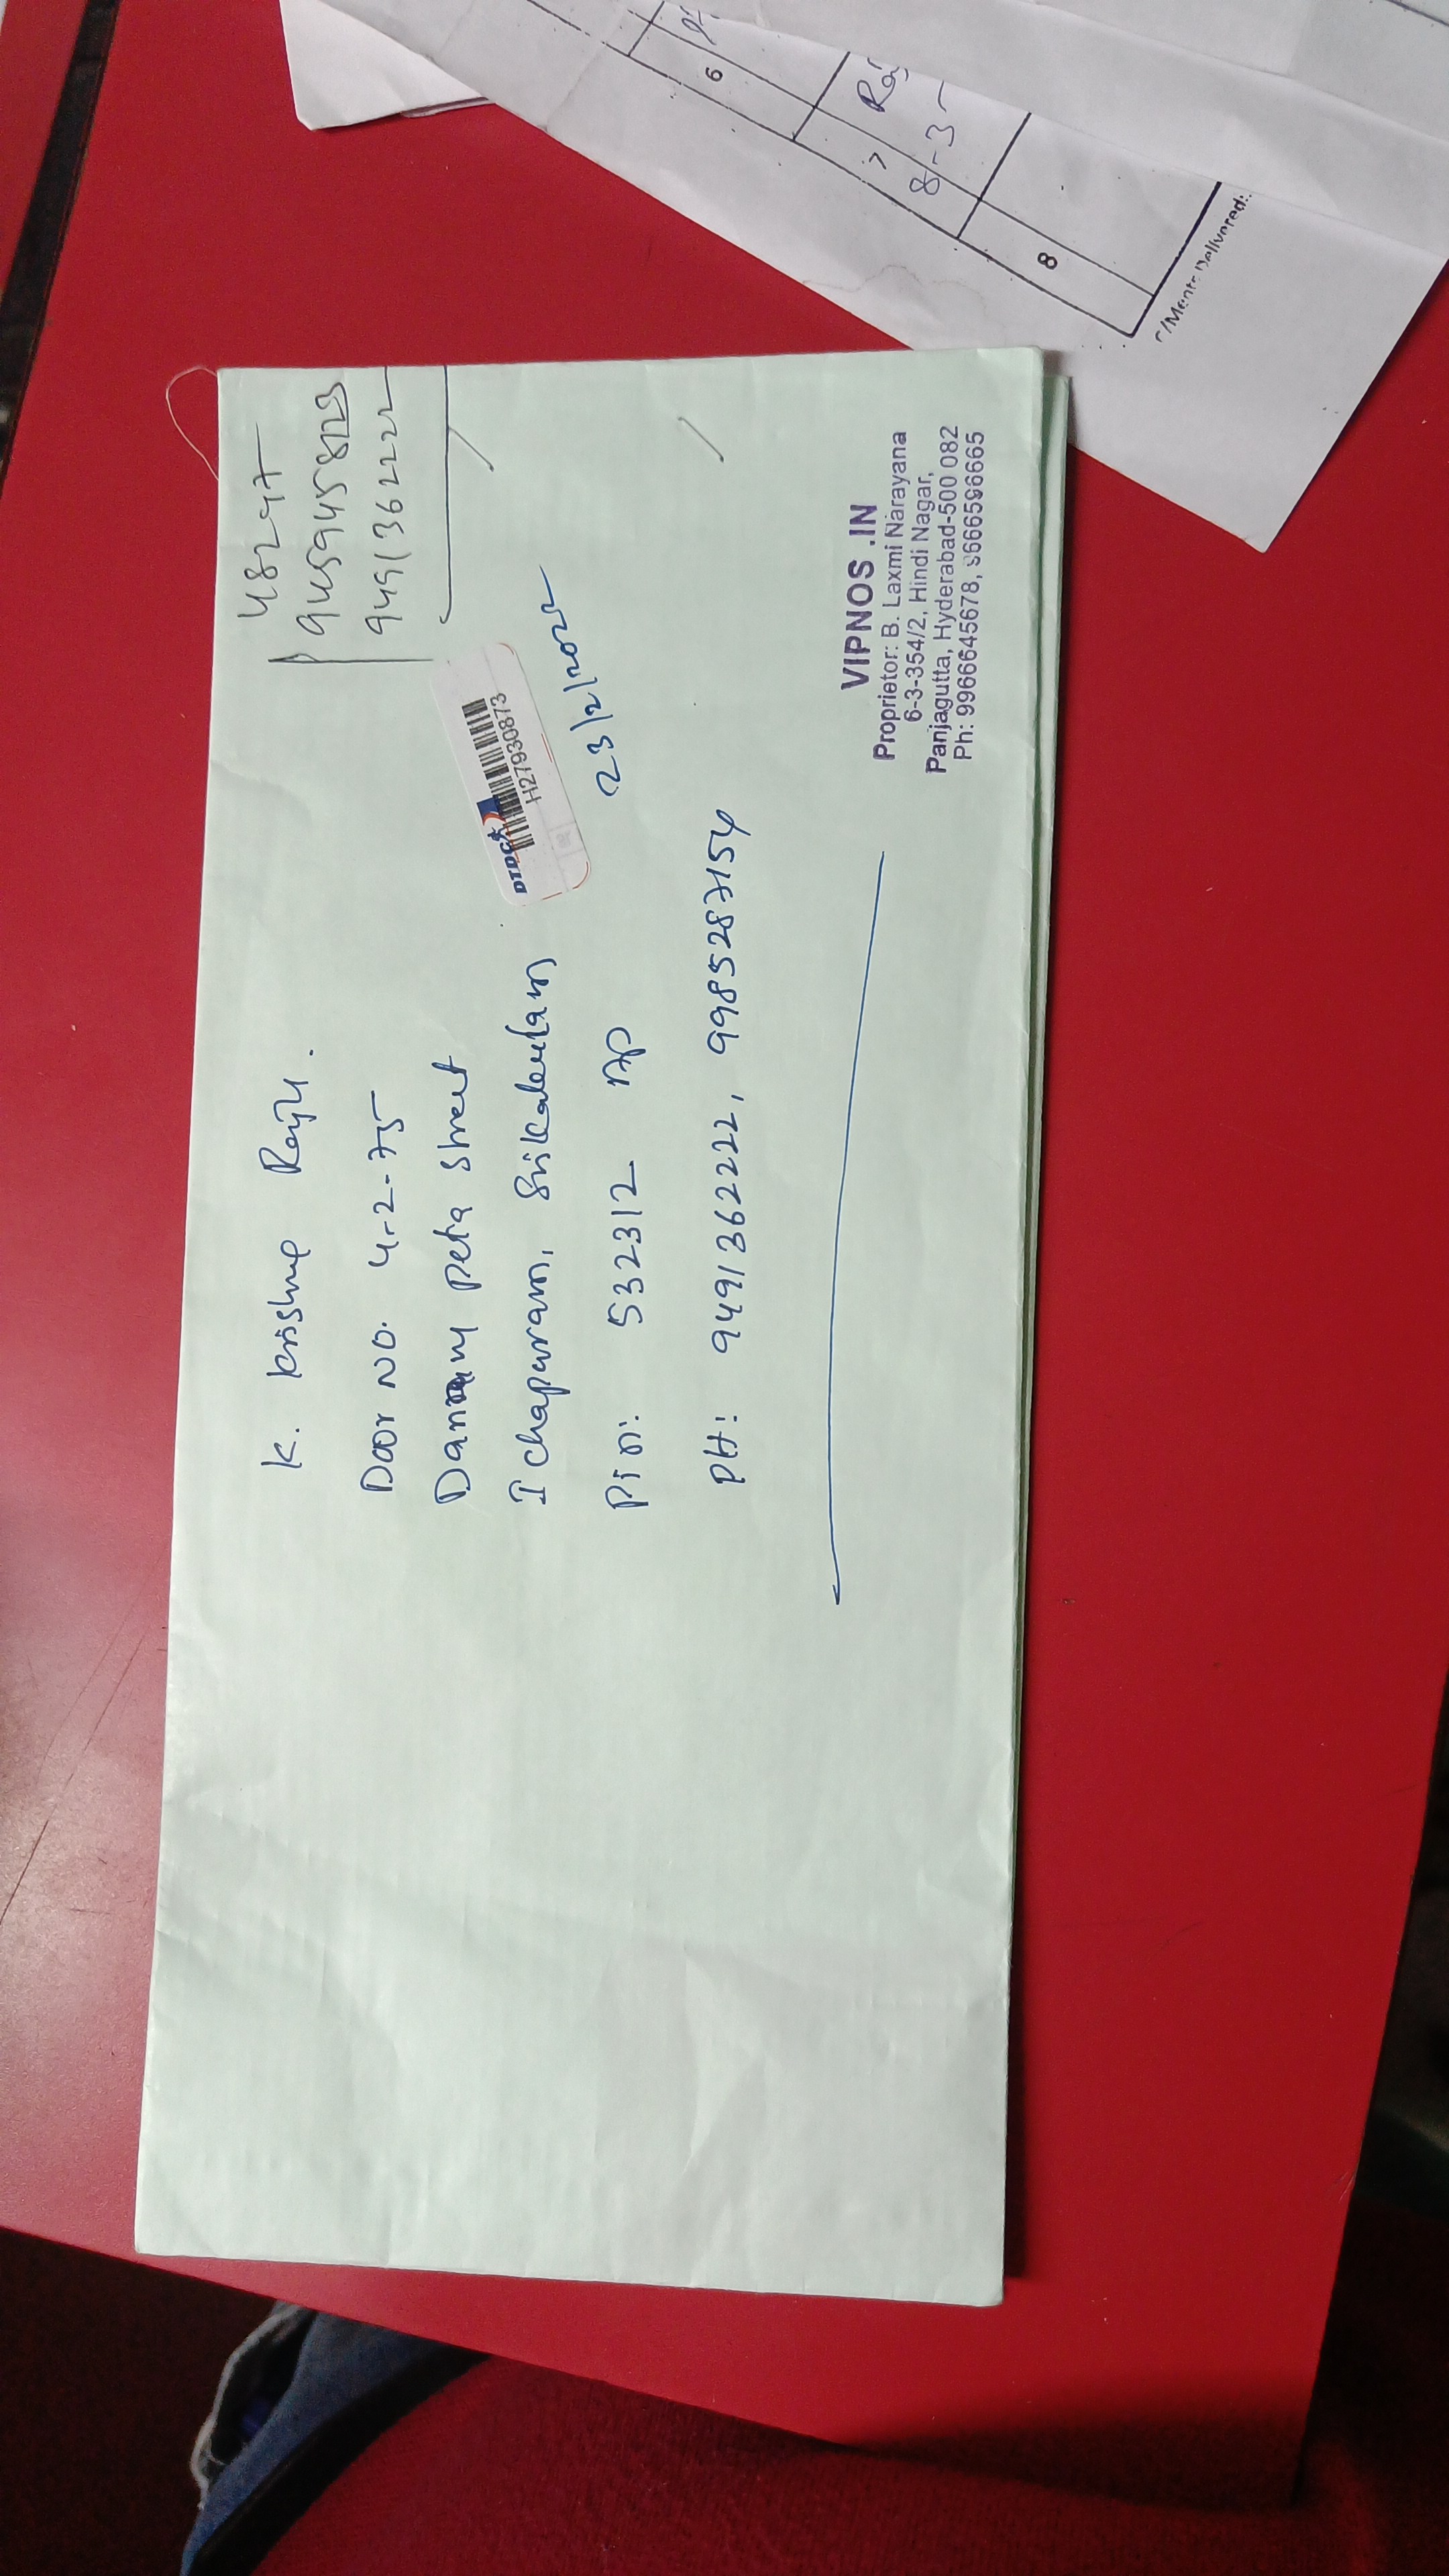 48247
9459458123
9491362222
K. Krishna Raju.
Door No. 4-2-75
Street
Ichapuram, Srikakulam
Pin: 532312 AP
PH: 9491362222, 9985287154
DTDC
H27930873
23/2/2022
VIPNOS .IN
Proprietor: B. Laxmi Narayana
6-3-354/2, Hindi Nagar,
Panjagutta, Hyderabad-500 082
Ph: 9966645678, 9666596665
6
7
8-3-
8
Delivered: